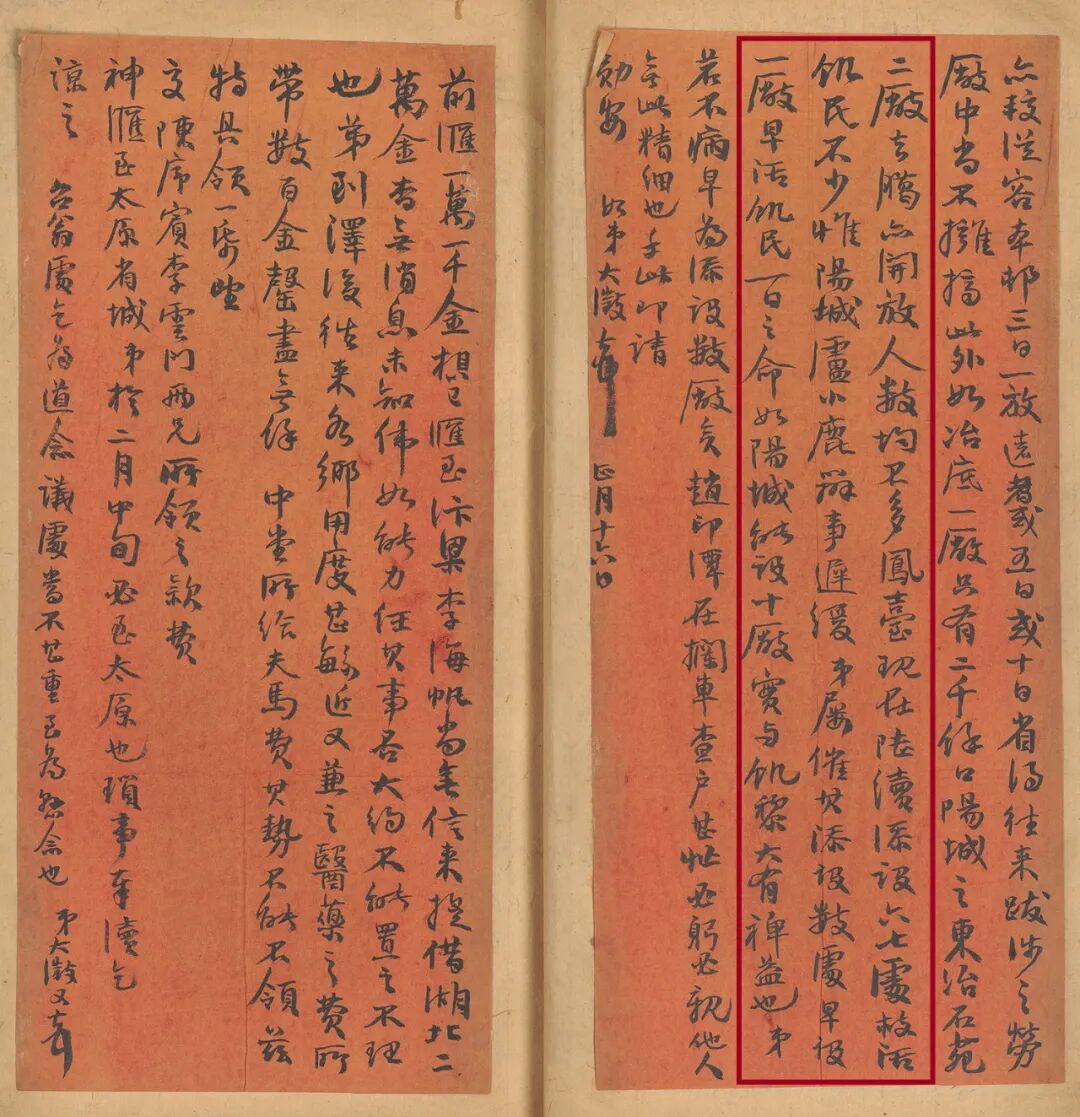 亦較從容本邨三日一放遠者或五日或十日省得往來跋涉之勞
厰中尚不擁擠此外如冶底一厰只有二千餘口陽城之東冶石苑
二厰去臘亦開放人數均不多鳳臺現在陸續添設六七處救活
飢民不少惟陽城盧小鹿辦事遲緩弟屢催其添設數處早設
一厰早活飢民一百之命如陽城能設十厰實與飢黎大有裨益也弟
若不病早為添設數厰矣趙印潭在攔車查戶甚忙必躬必親他人
無此精細也手此即請
勛安 如弟大澂頓首 正月十六日
前滙一萬一千金想已滙至汴梁李海帆尚無信來提借湖北二
萬金杳無消息未知佛如能力任其事否大約不能置之不理
也弟到澤後往來各鄉用度甚 近又兼之醫藥之費所
帶數百金罄盡無餘 中丞所給夫馬費其勢不能不領茲
特具領一紙望
交陳序賓李雲門兩兄所領之款費
神滙至太原省城弟於二月中旬必至太原也瑣事奉瀆乞
諒之 翁處乞為道念議處當不甚重至為 念也 弟大澂又頓